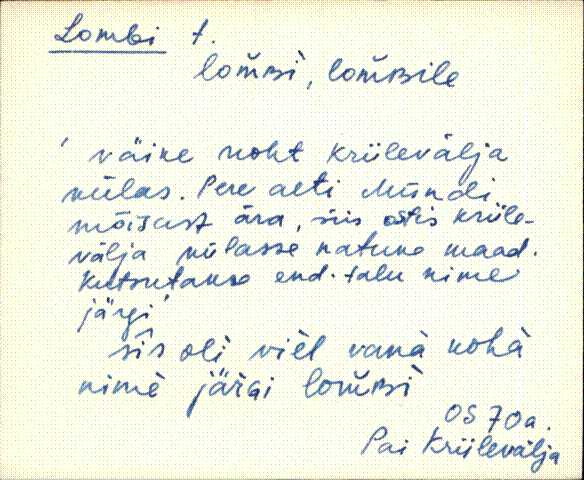 Lombi t.
lom̆ʙì, lom̆ʙile
' väike koht Kriilevälja
külas. Pere aeti Mündi
mõisast ära, siis ostis Kriile-
välja külasse natuke maad.
Kutsutakse end. talu nime
järgi'
sîs oĺi vièl vanà kohà
nimè järGi lom̆ʙì
OS 70a.
Pai Kriilevälja